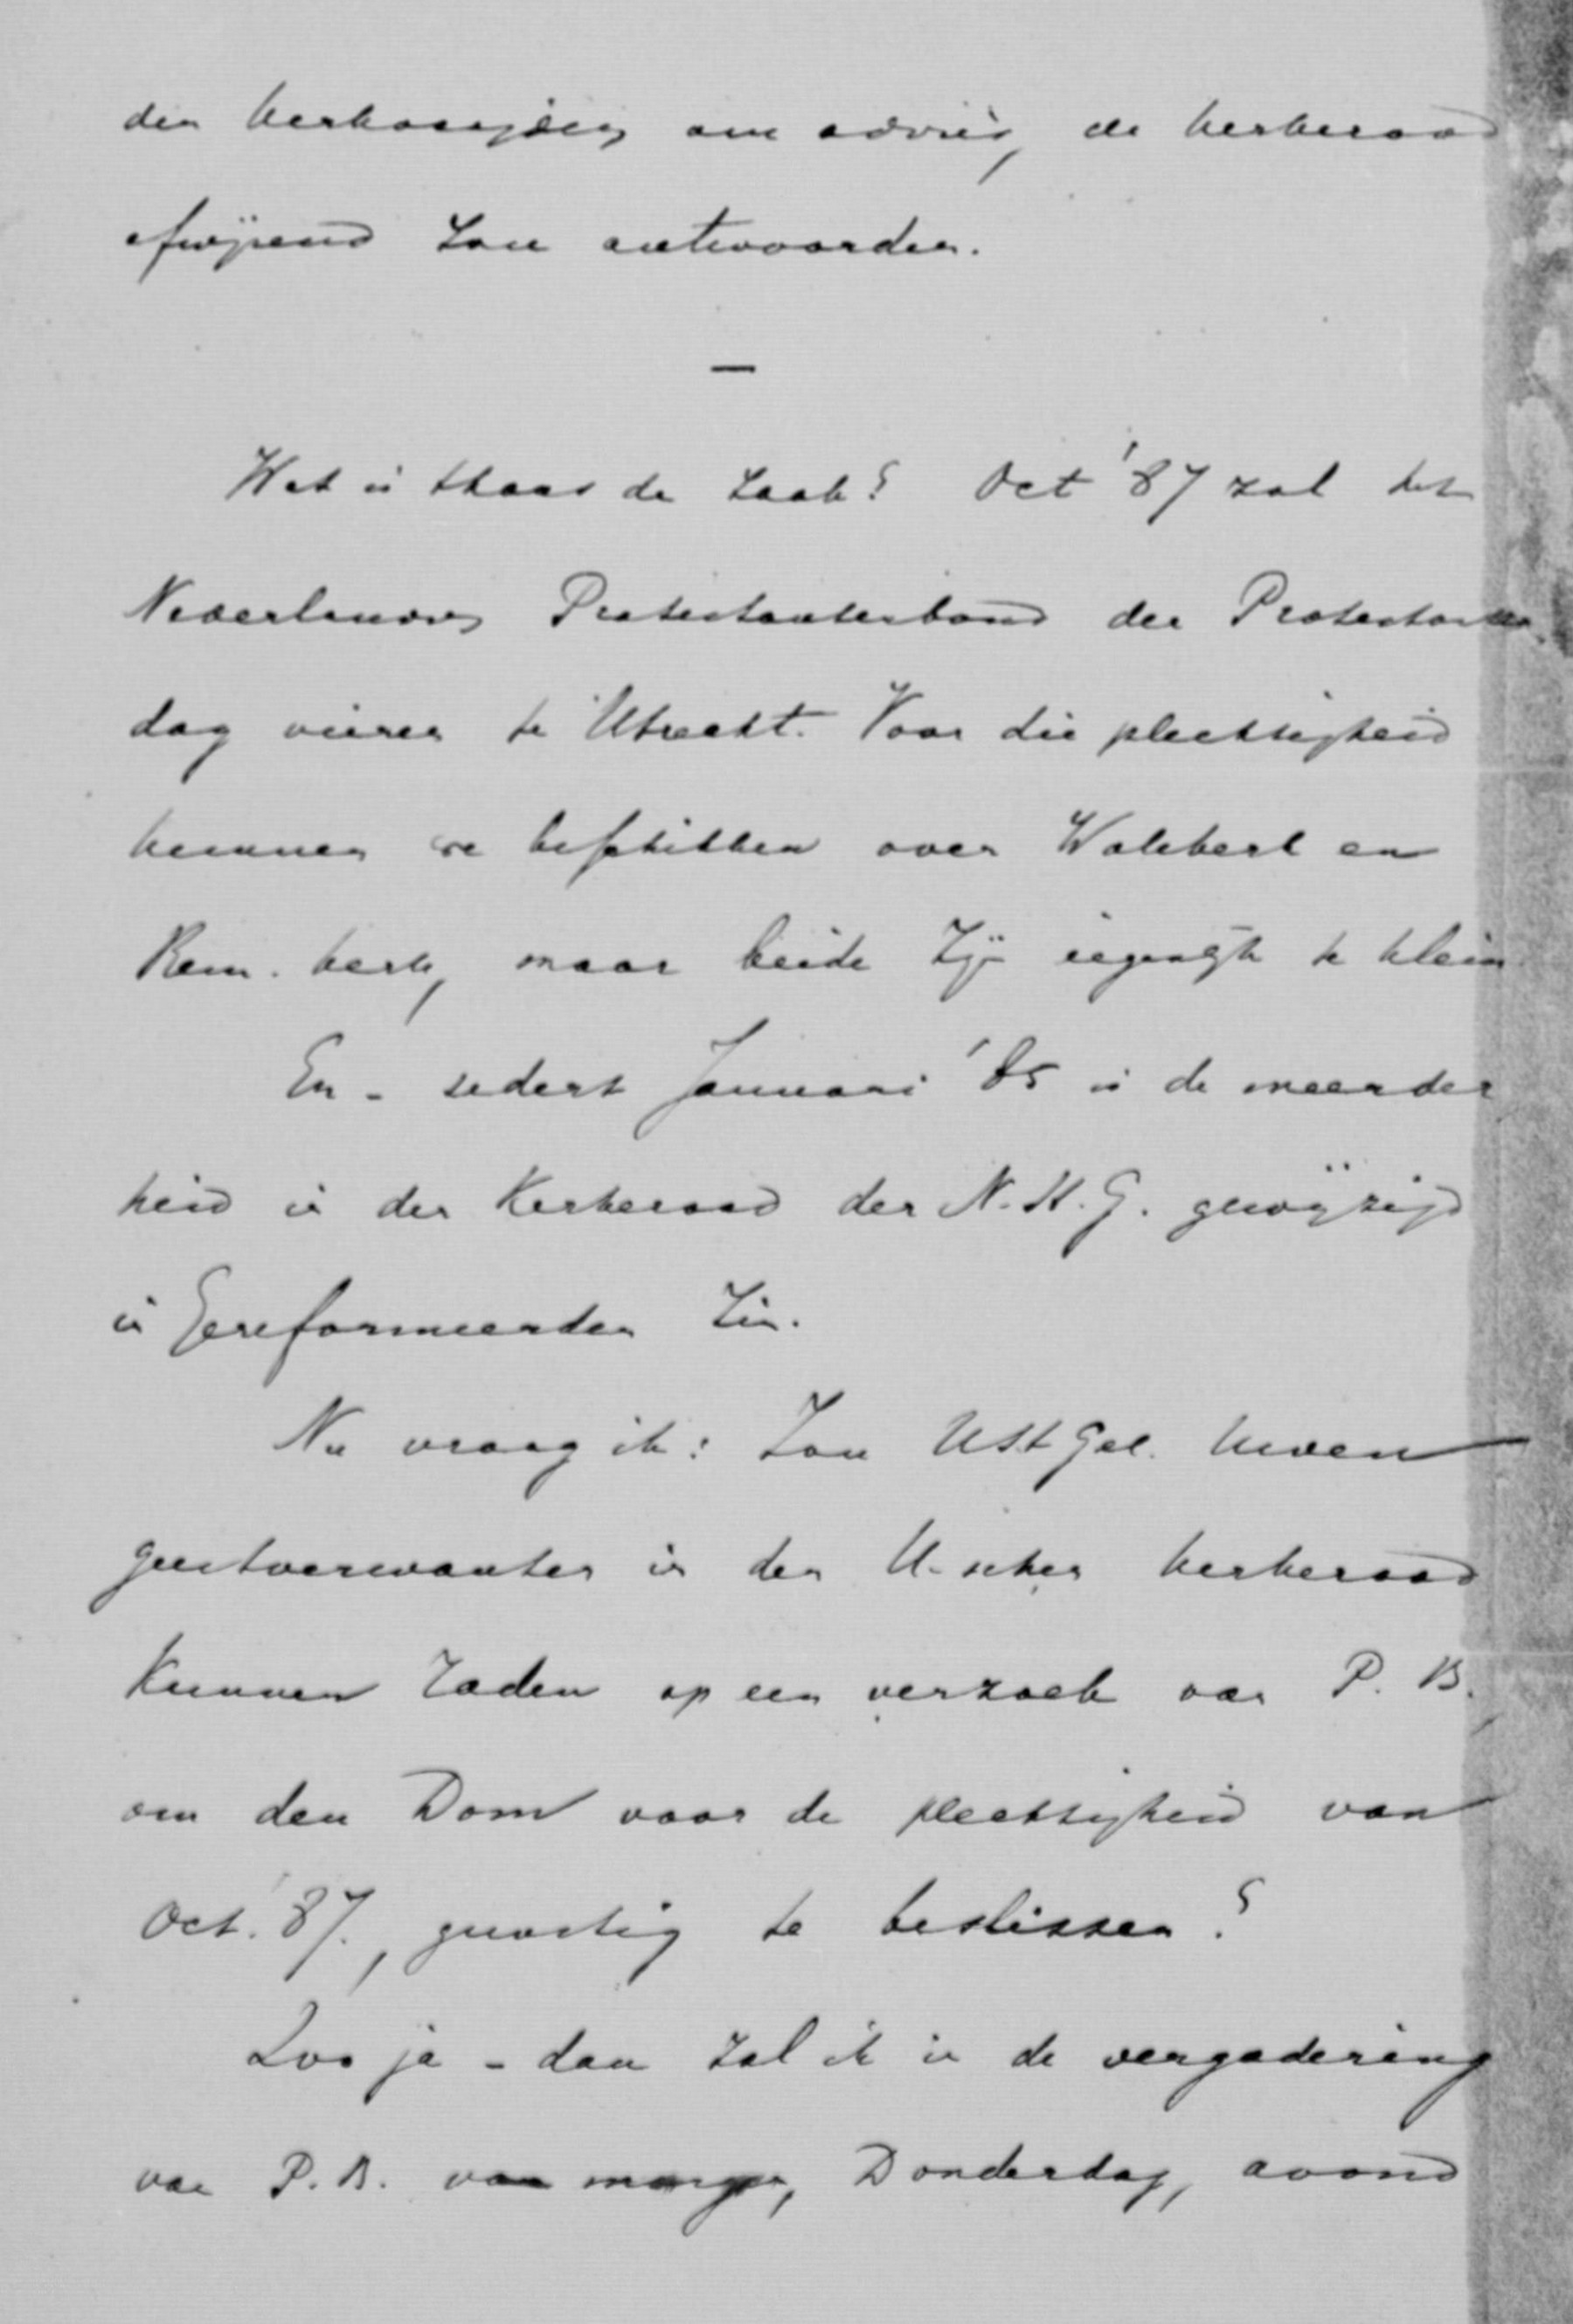 den kerkvoogdij om advies, de kerkeraad
afwijzend zou antwoorden.
—
Wat is thans de zaak? Oct '87 zal het
Nederlandsch Protestantenbond den Protestanten
dag vieren te Utrecht. Voor die plechtigheid
kunnen we beschikken over Walekerk en
Rem. kerk, maar beide zijn eigenlijk te klein
En - sedert Januari '85 is de meerder
heid in den Kerkeraad der N. H. G. gewijzigd
in Gereformeerden zin.
Nu vraag ik: Zou UHGel. uwen
geestverwanten in den U-schen kerkeraad
kunnen raden op een verzoek van P. B.
om den Dom voor de plechtigheid van
Oct. '87, gunstig te beslissen?
Zoo ja - dan zal ik in de vergadering
van P. B. van morgen, Donderdag, avond